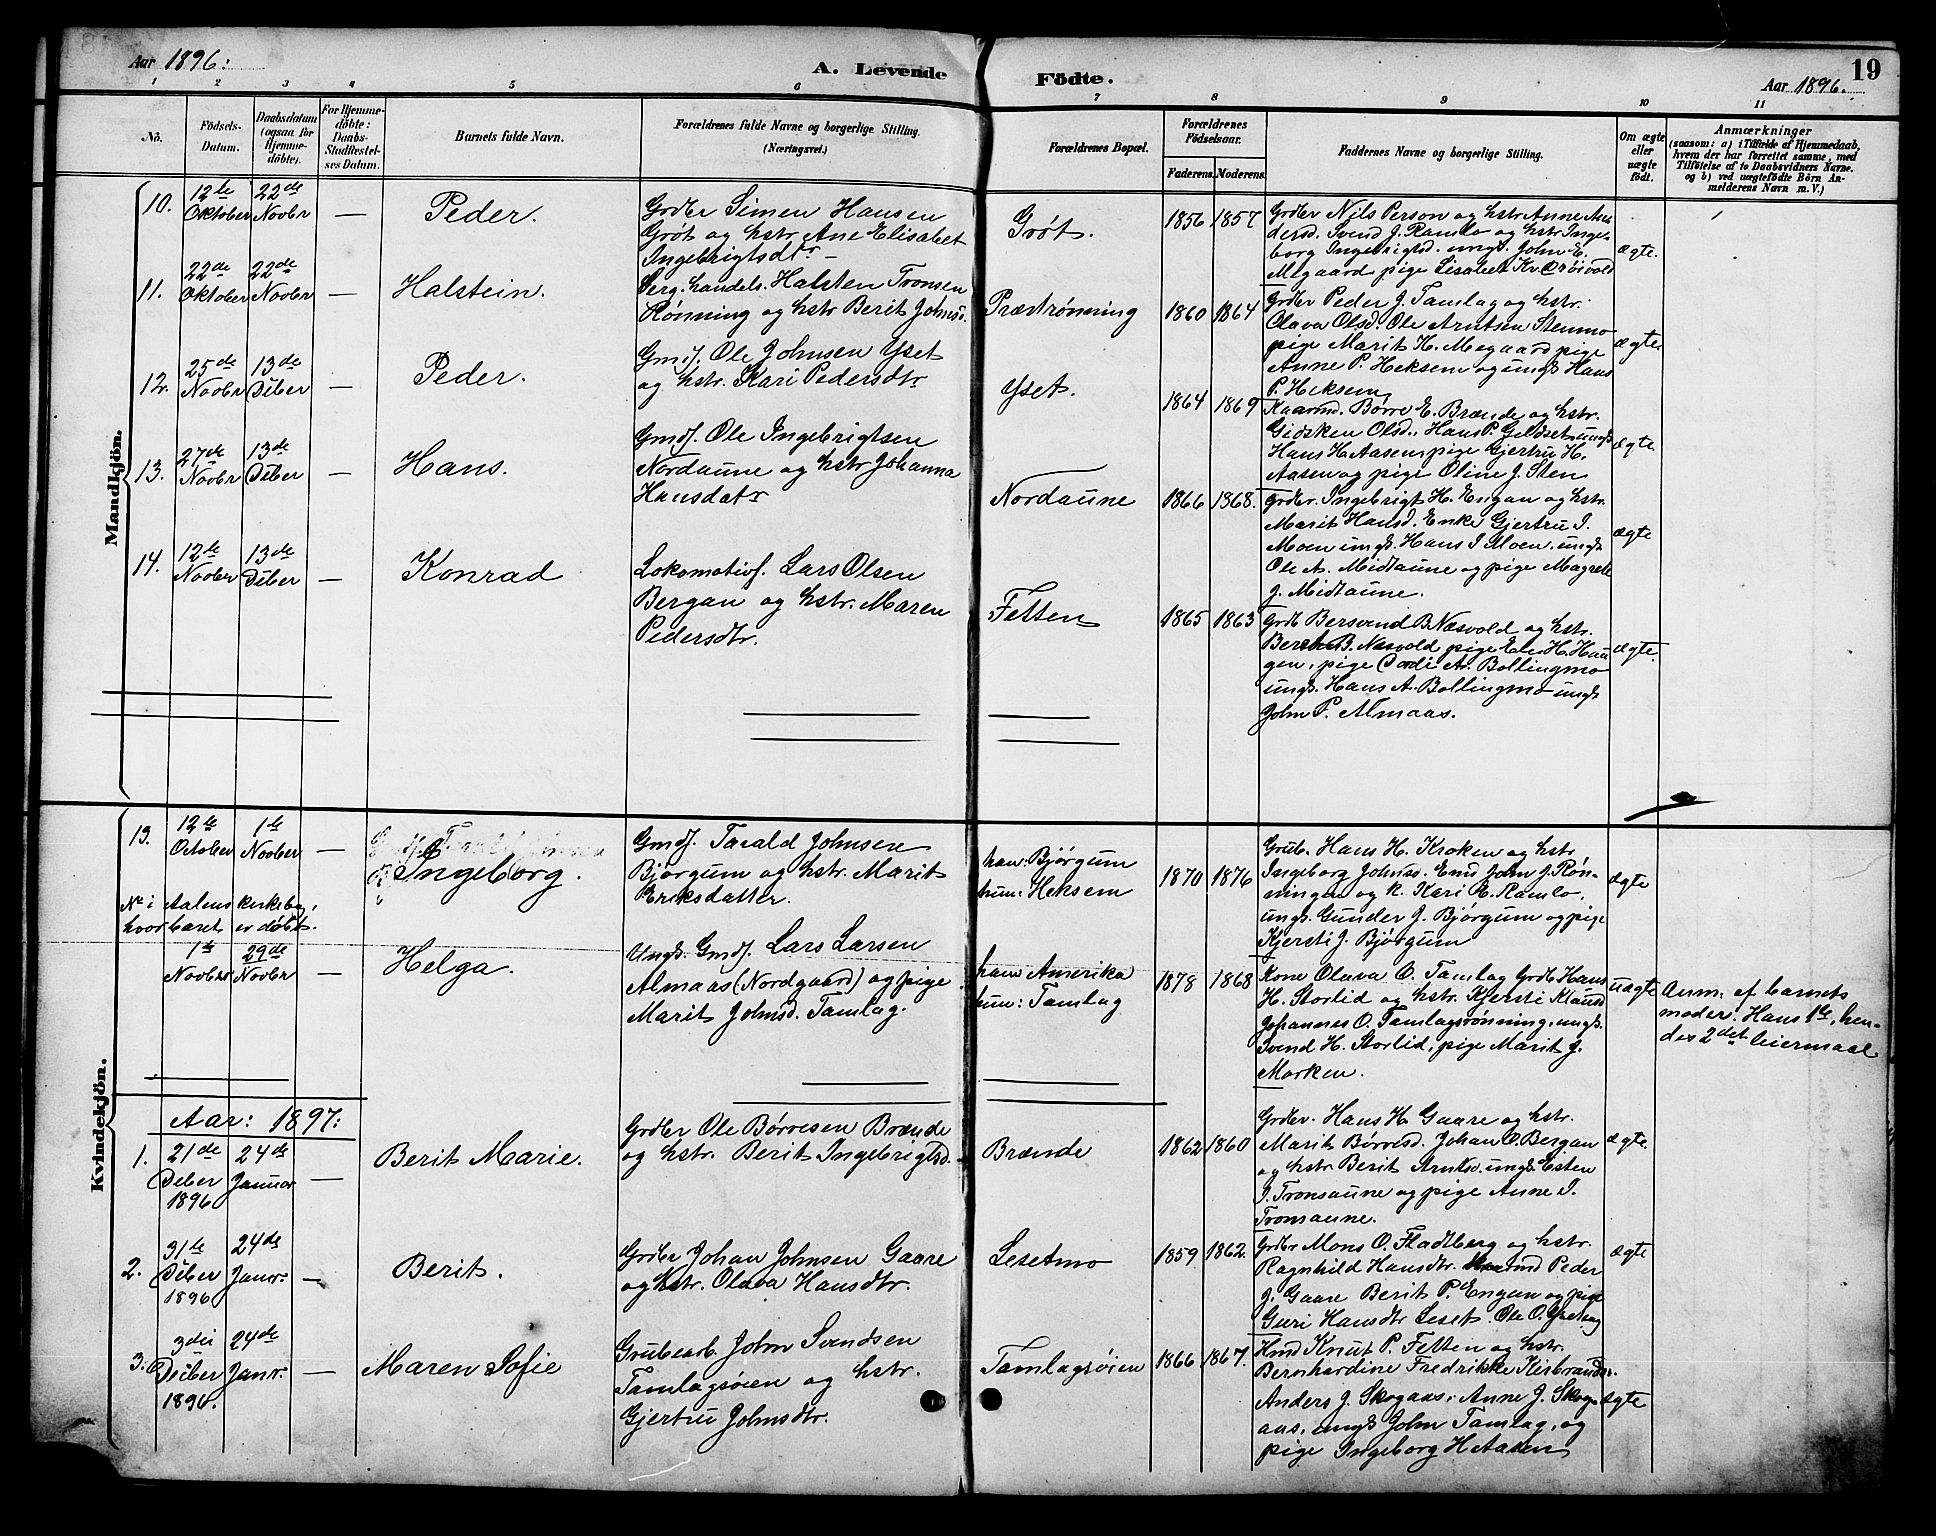 Aar 1896:
A. Levende Födte.
Aar 1896.
19
1 2 3 4 5 6 7 8 9 10 11
No.
Födsels-Datum.
Daabsdatum (ogsaa for Hjemme-döbte).
For Hjemme-döbte: Daabs-Stadfestel-ses Datum.
Barnets fulde Navn.
Forældrenes fulde Navne og borgerlige Stilling. (Næringsvei.)
Forældrenes Bopæl.
Forældrenes Födselsaar.
Faderens. Moderens.
Faddernes Navne og borgerlige Stilling.
Om ægte eller uægte födt.
Anmærkninger
(saasom: a) i Tilfælde af Hjemmedaab,
hvem der har forrettet samme, med
Tilföielse af to Daabsvidners Navne.
og b) ved uægtefödte Börn An-
melderens Navn m. V.)
Mandkjön.
10. 12te Oktober 22de Novbr —
Peder.
Grdbr Simen Hansen
Grøt og hstr. Ane Elisabet
Ingebrigtsdtr —
Grøt.
1856 1857
Grdbr Nils Person og hstr Anne An-
dersd. Svend J. Ramlo og hstr Inge-
borg Ingebrigtsd. ungk. John E.
Megaard pige Lisabet
ægte.
11. 22de Oktober 22de Novbr —
Halstein.
Berg. handels. Halsten Tronsen
Rønning og hstr Berit Johnsd.
Præstrønning
1860 1864
Grdbr Peder J. Tamlag og hstr.
Olava Olsd. Ole Arntsen Stenmo
pige Marit H. Megaard pige
Anne P. Heksem og ungk Hans
P. Heksem
ægte
12. 25de Novbr 13de Deber —
Peder.
Gmdf. Ole Johnsen Yset
og hstr. Kari Pedersdtr
Yset.
1864 1869
Kaarmd. Børre E. Brænde og hstr.
Gidsken Olsd. Hans P. Gildset ungk
Hans H. Aasen pige Gjertru H.
Aasen og pige Oline J. Sten
ægte
13. 27de Novbr 13de Deber —
Hans.
Gmdf. Ole Ingebrigtsen
Nordaune og hstr Johanna
Hansdatr
Nordaune
1866 1868.
Grdbr. Ingebrigt H. Engan og hstr.
Marit Hansd. Enke Gjertru I.
Moen ungk. Hans I Moen. ungk
Ole A. Midtaune og pige Magrete
J. Midtaune.
ægte
14. 12te Novbr 13de Deber —
Konrad
Lokomotivf. Lars Olsen
Bergan og hstr. Maren
Pedersdtr.
Fetten
1865 1863
Grdb Bersvend B. Næsvold og hstr.
B. Næsvold pige Ele H. Hau
gen, pige A. Bollingmo
ungk. Hans A. Bollingmo ungk
John P. Almaas.
ægte.
Kvindekjön.
13. 12te October 1ste Novber —
Ingeborg.
Gmdf. Tarald Johnsen
Bjørgum og hstr. Marit
Eriksdatter.
han: Bjørgum
hun: Heksem
1870 1876
Grub. Hans H. Kroken og hstr
Ingeborg Johnsd. Enkd John J. Røn-
ningen og k. Kari E. Ramlo,
ungk. Gunder J. Bjørgum og pige
Kjersti J. Bjørgum
ægte
No i Aalens kirkebog,
hvor baret er døbt.
1ste Novber 29de Novbr —
Helga.
Ungk. Gmdf. Lars Larsen
Almaas (Nordgaard) og pige
Marit Johnsd. Tamlag.
han Amerika
hun: Tamlag
1878 1868
Kone Olava O. Tamlag Grdb. Hans
H. Storlid og hstr. Kjersti Klausd
Johannes O. Tamlagsrønning, ungk.
Svend H. Storlid, pige Marit J.
Morken.
uægte
Anm. af barnets
moder. Hans 1ste, hen-
des 2det leiermaal
Aar: 1897:
1. 21de Deber 1896 24de Januar —
Berit Marie.
Grdbr Ole Børresen Brænde
og hstr. Berit Ingebrigtsd.
Brænde
1862 1860
Grdbr. Hans H Gaare og hstr.
Marit Børresd. Johan O. Bergan
og hstr Berit Arntsd. ungk Esten
I. Tronsaune og pige Anne I.
Tronsaune.
ægte.
2. 31te Deber 1896 24de Janr. —
Berit.
Grdbr Johan Johnsen Gaare
og hstr. Olava Hansdtr.
Lesetmo
1859 1862.
Grdbr Mons O. Fladtberg og hstr.
Ragnhild Hansdtr. Peder
J. Gaare Berit P. Engan og pige
Guri Hansdtr Leset. Ole O.
ægte
3. 3die Deber 1896. 24de Janr. —
Maren Sofie
Grubearb. John Svendsen
Tamlagsøien og hstr.
Gjertru Johnsdtr.
Tamlagsøien
1866 1867.
Hmd Knut P. Fetten og hstr.
Bernhardine Fredrikke
Anders J. Skogaas. Anne J. Skog-
aas, ungk John Tamlag, og
pige Ingeborg H Aasen
ægte